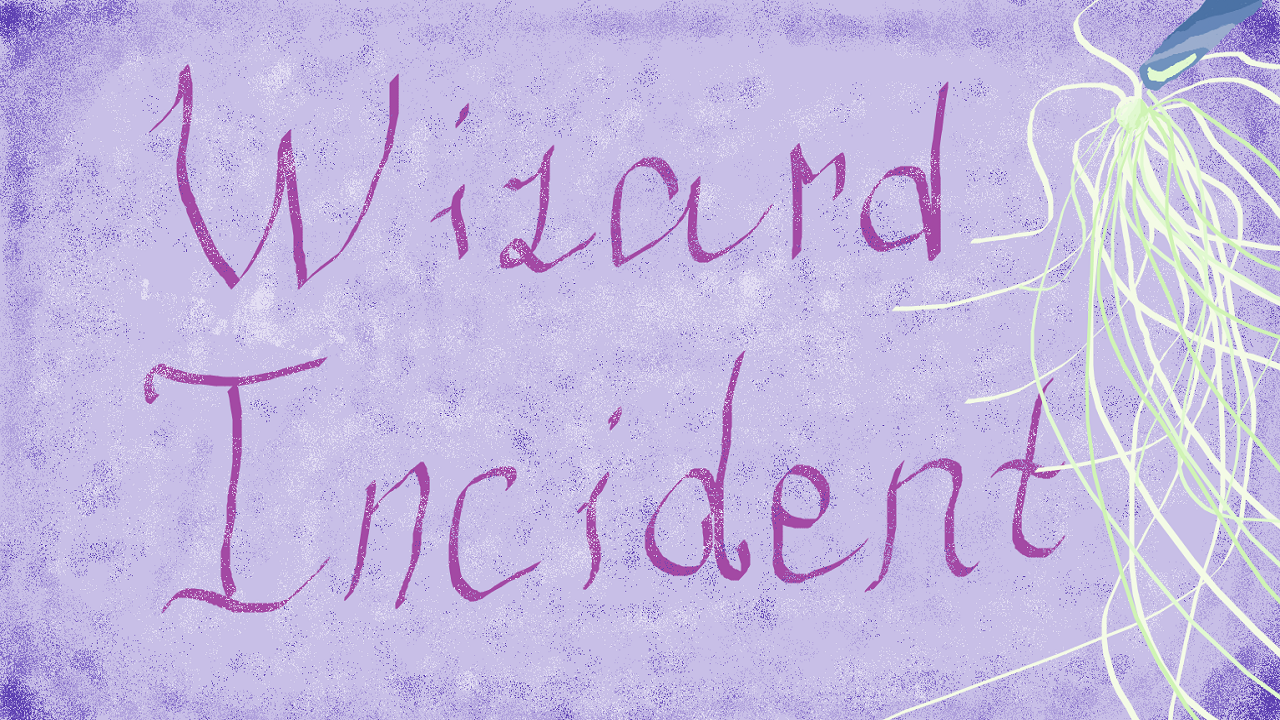 Wizard
Incident